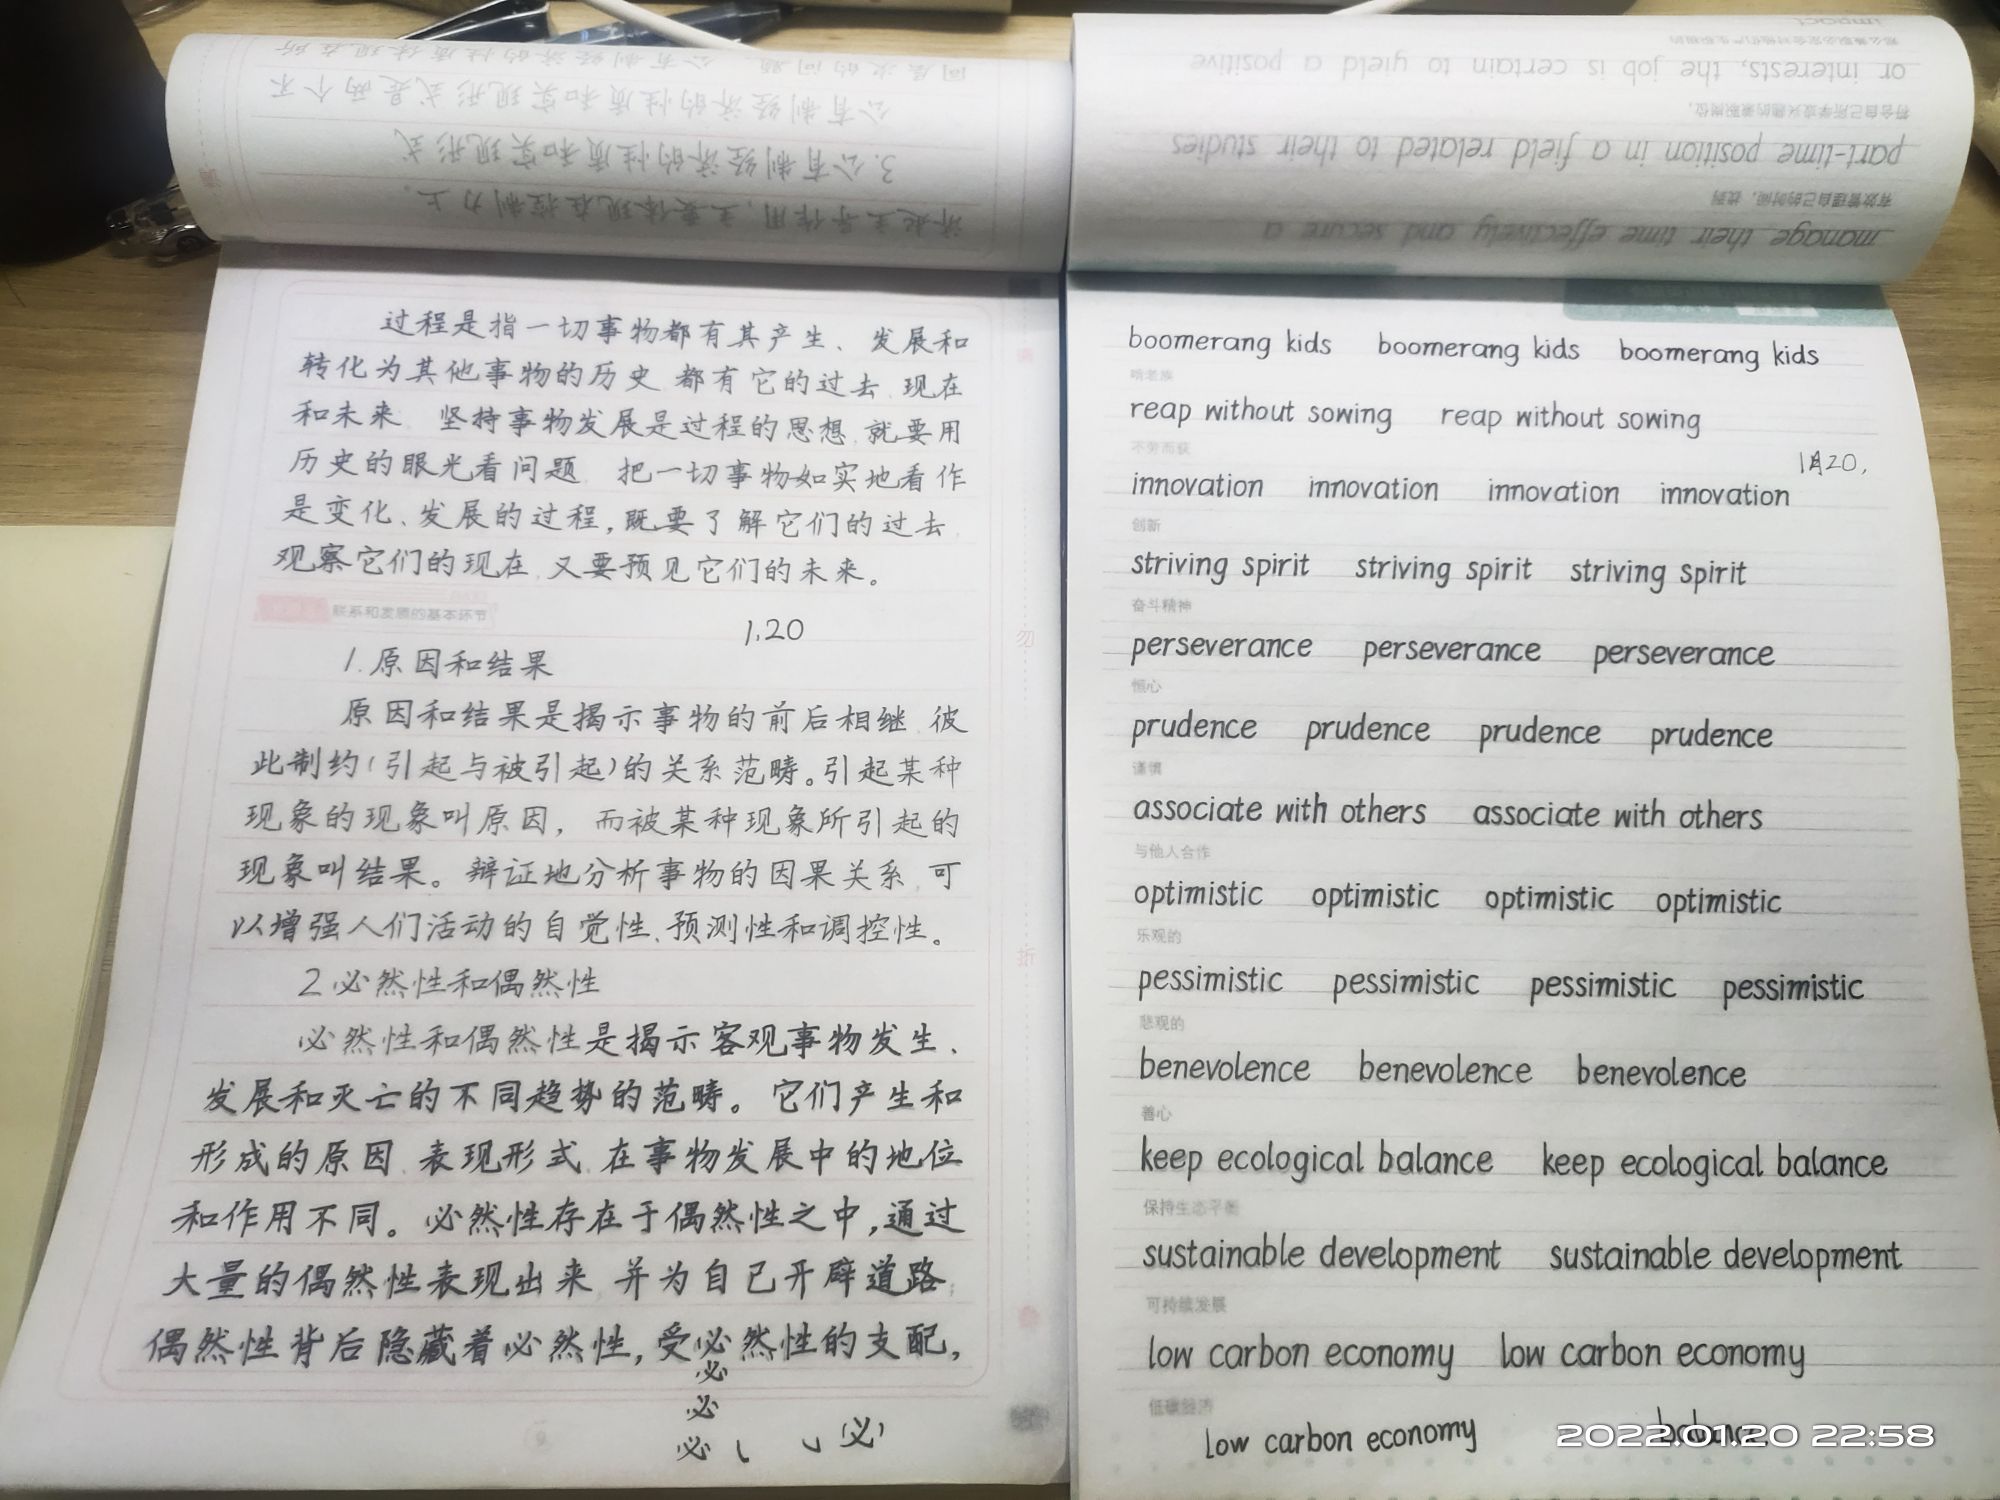 同层次的问题。公有制经济的性质体现在所
公有制经济的性质和实现形式是两个不
3.公有制经济的性质和实现形式
济起主导作用,主要体现在控制力上。
过程是指一切事物都有其产生、发展和
转化为其他事物的历史,都有它的过去、现在
和未来。坚持事物发展是过程的思想,就要用
历史的眼光看问题,把一切事物如实地看作
是变化、发展的过程,既要了解它们的过去、
观察它们的现在,又要预见它们的未来。
联系和发展的基本环节
1.20
1.原因和结果
原因和结果是揭示事物的前后相继、彼
此制约(引起与被引起)的关系范畴。引起某种
现象的现象叫原因,而被某种现象所引起的
现象叫结果。辩证地分析事物的因果关系,可
以增强人们活动的自觉性、预测性和调控性。
2.必然性和偶然性
必然性和偶然性是揭示客观事物发生、
发展和灭亡的不同趋势的范畴。它们产生和
形成的原因、表现形式、在事物发展中的地位
和作用不同。必然性存在于偶然性之中,通过
大量的偶然性表现出来,并为自己开辟道路;
偶然性背后隐藏着必然性,受必然性的支配,
必
必
必 必
勿
折
impact
那么兼职必定会对他们产生积极的
or interests, the job is certain to yield a positive
符合自己所学或兴趣的兼职岗位,
part-time position in a field related to their studies
有效管理自己的时间,找到
manage their time effectively and secure a
boomerang kids boomerang kids boomerang kids
啃老族
reap without sowing reap without sowing
不劳而获
1月20,
innovation innovation innovation innovation
创新
striving spirit striving spirit striving spirit
奋斗精神
perseverance perseverance perseverance
恒心
prudence prudence prudence prudence
谨慎
associate with others associate with others
与他人合作
optimistic optimistic optimistic optimistic
乐观的
pessimistic pessimistic pessimistic pessimistic
悲观的
benevolence benevolence benevolence
善心
keep ecological balance keep ecological balance
保持生态平衡
sustainable development sustainable development
可持续发展
low carbon economy low carbon economy
低碳经济
low carbon economy balance
2022.01.20 22:58